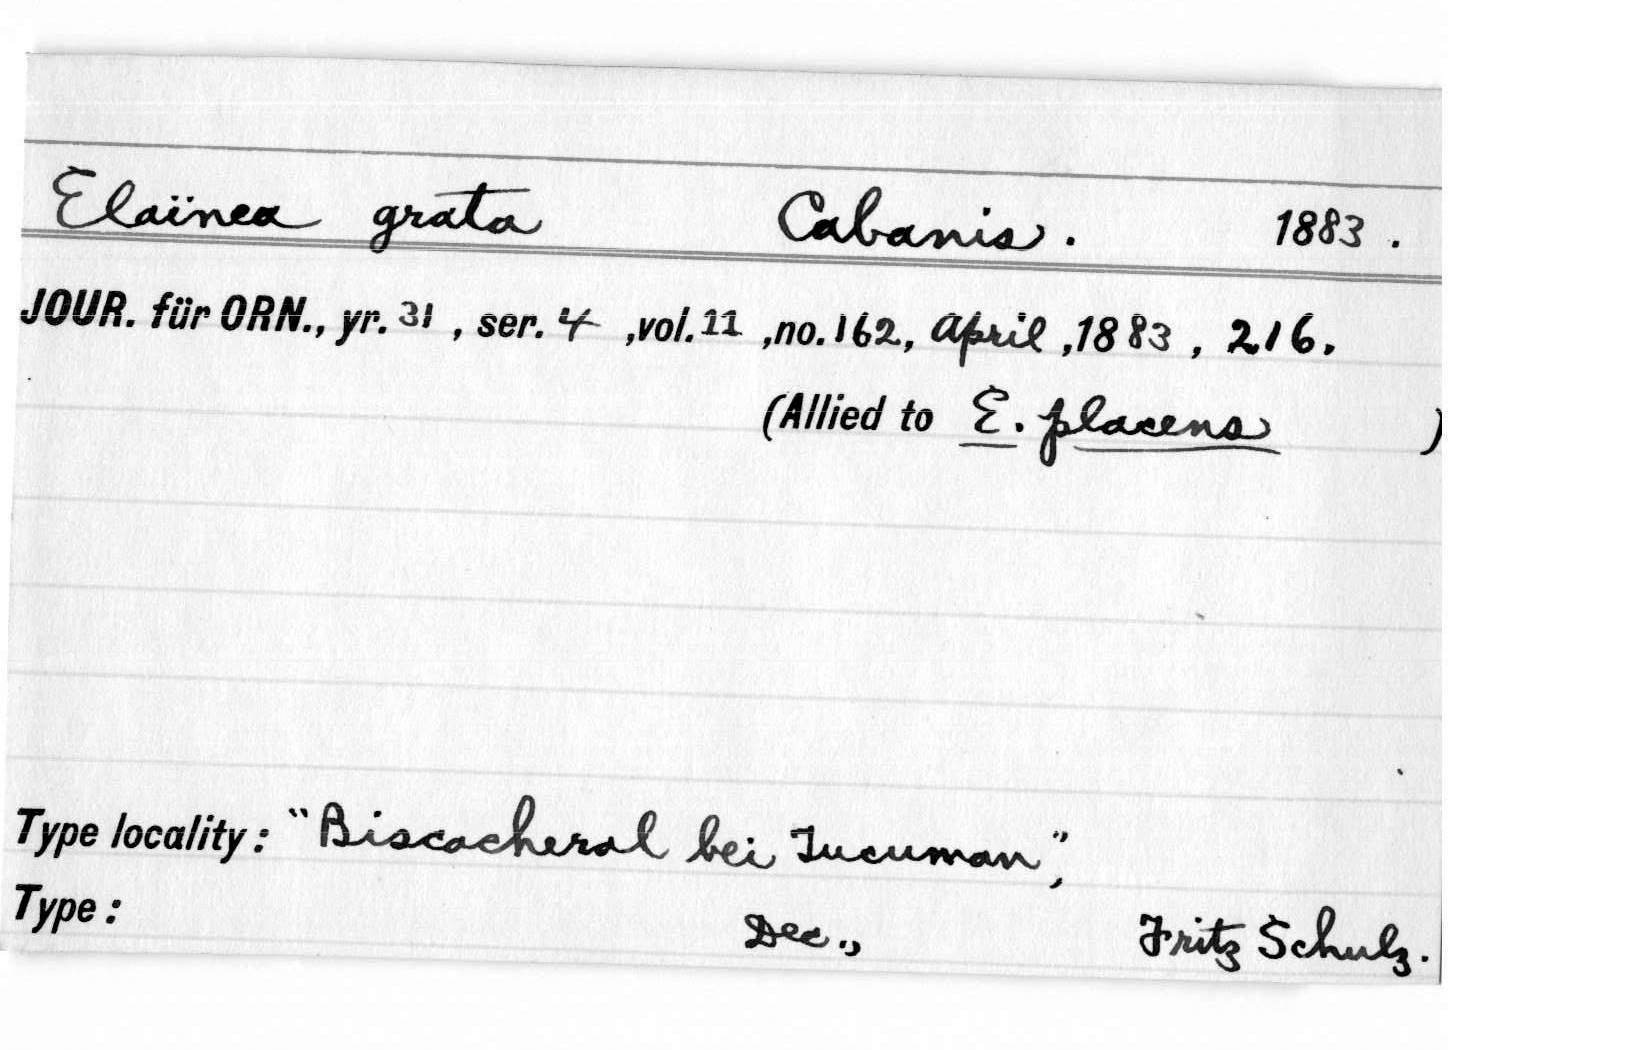 Elaïnea grata Cabanis. 1883.
JOUR. für ORN., yr. 31, ser. 4, vol. 11, no. 162, April, 1883, 216.
(Allied to E. placens)
Type locality: "Biscacheral bei Tucuman",
Type: Dec., Fritz Schulz.